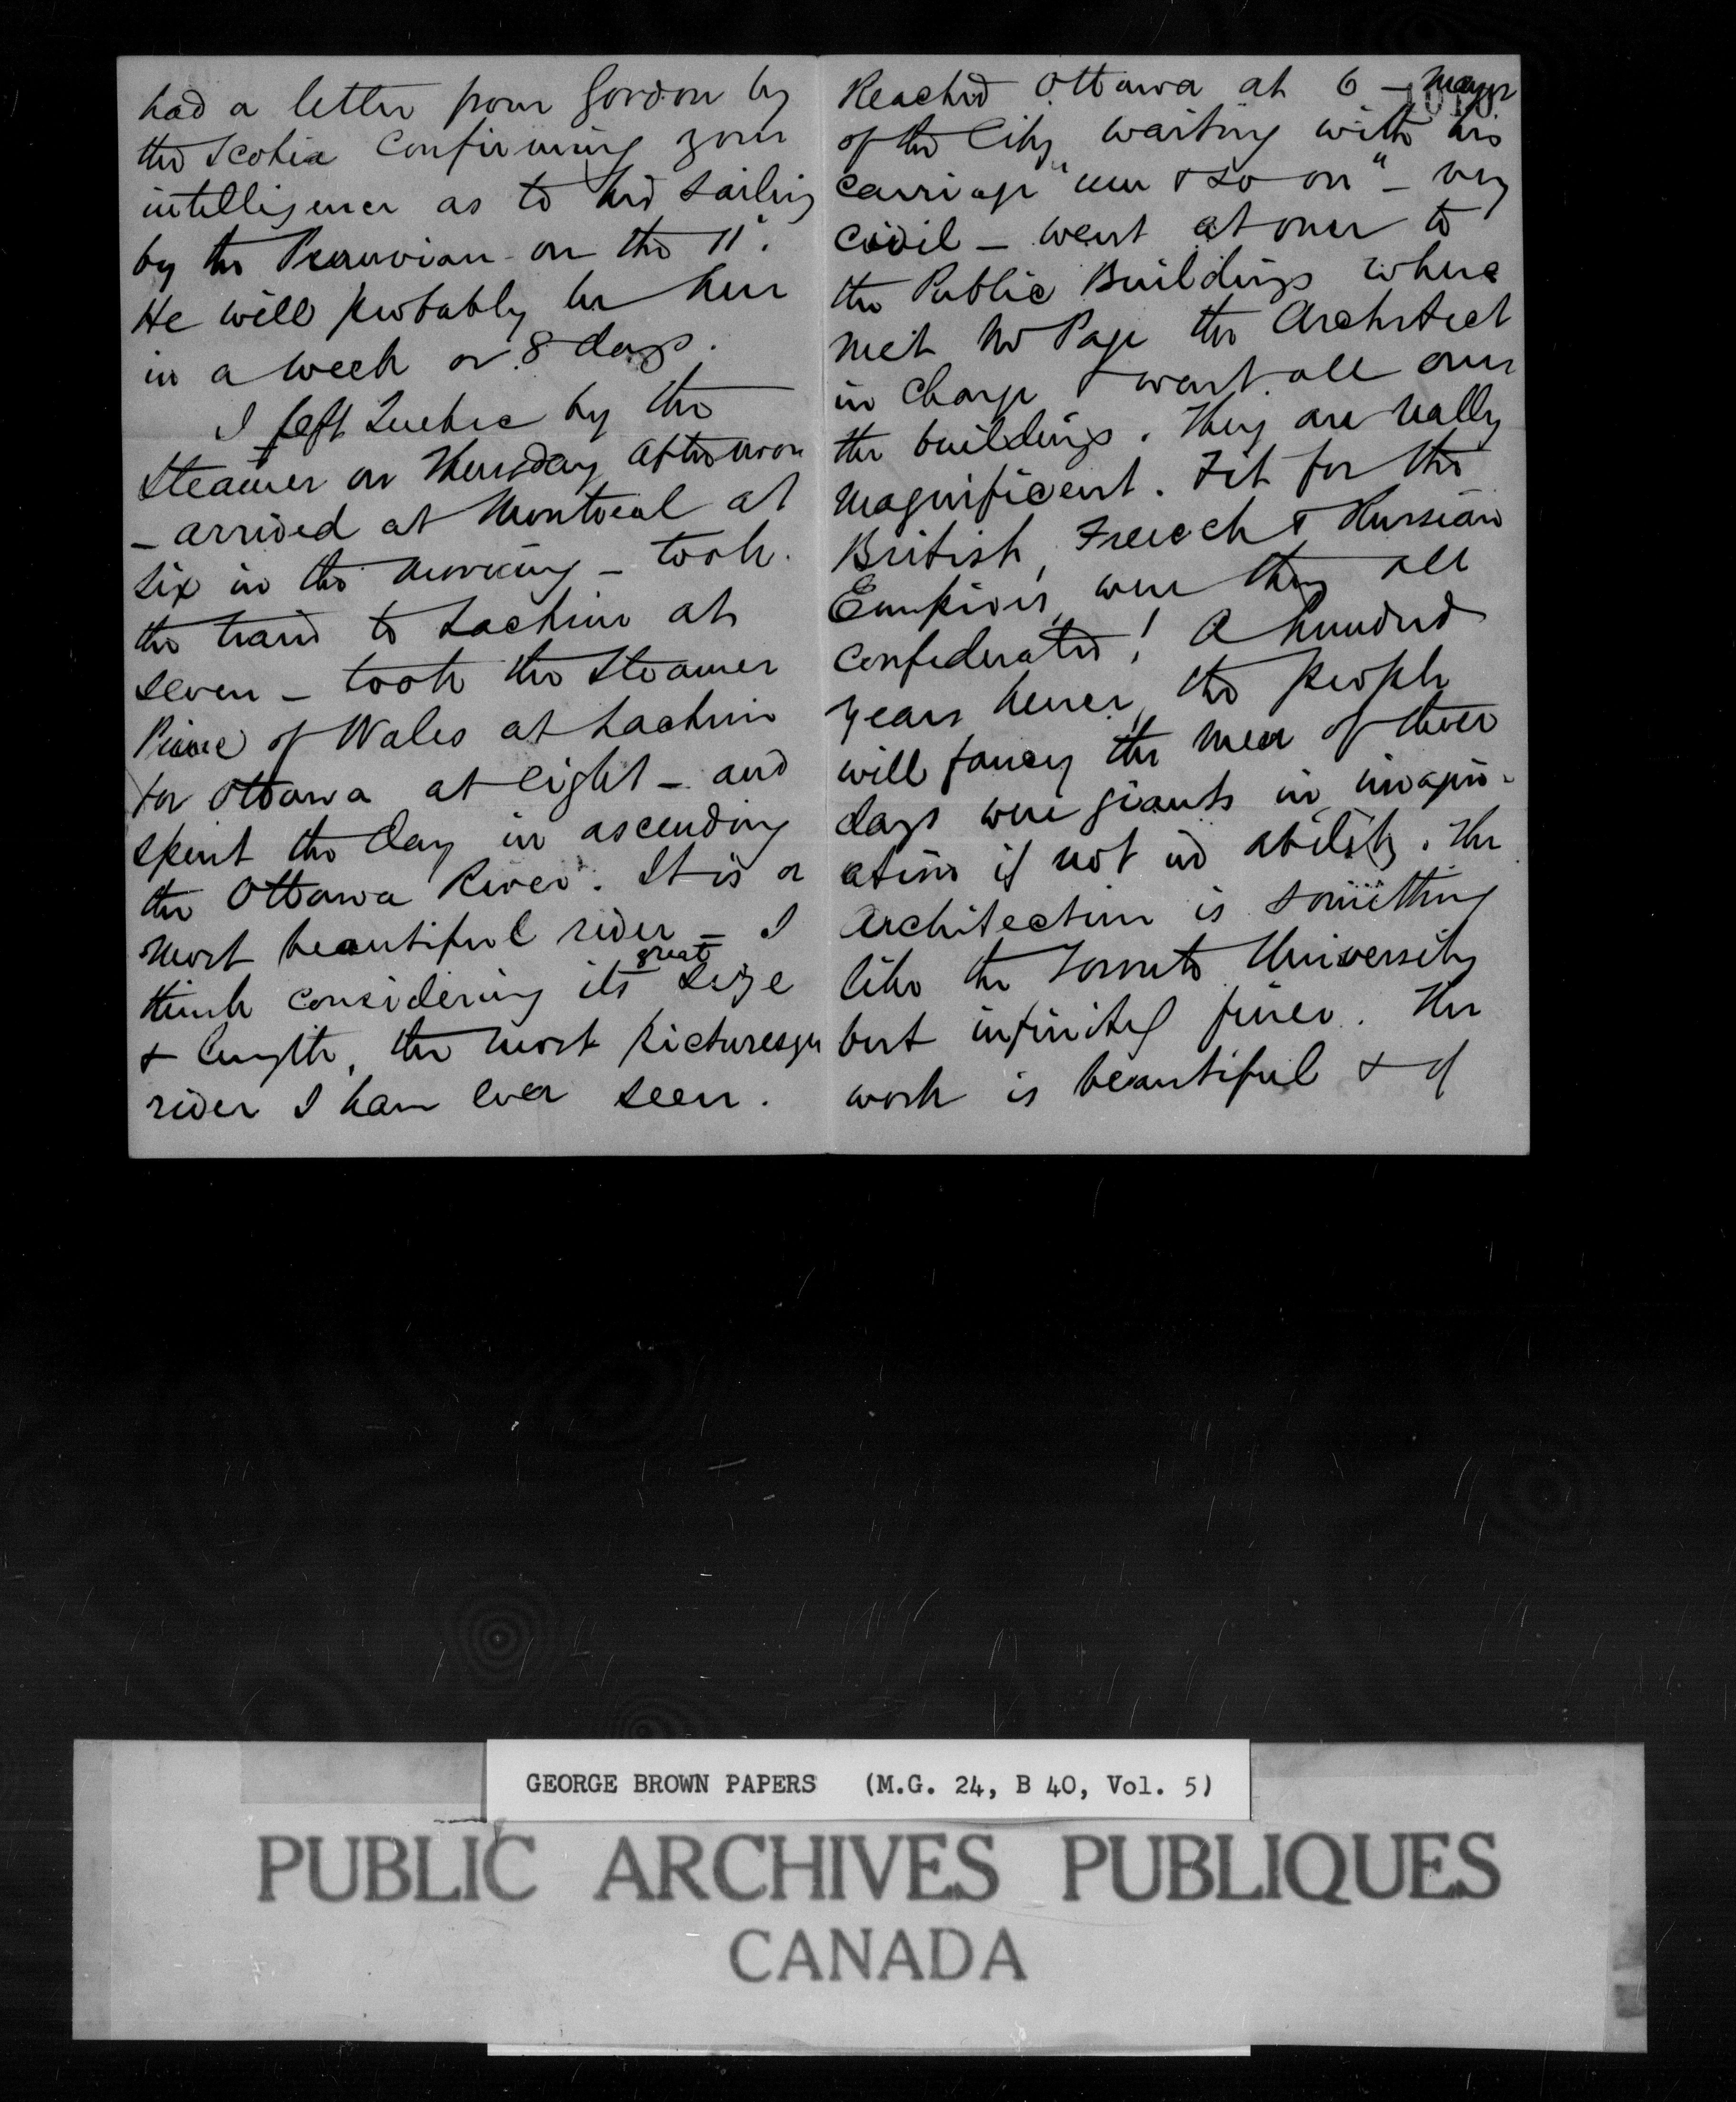 had a letter from Gordon by
the Scotia Confirming your
intelligence as to his sailing
by the Peruvian on the 11".
He will probably be here
in a week or 8 days.
I left Quebec by the
Steamer on Thursday afternoon
– arrived at Montreal at
six in the morning – took
the train to Lachine at
seven – took the Steamer
Prince of Wales at Lachine
for Ottawa at eight – and
spent the day in ascending
the Ottawa River. It is a
most beautiful river – I
think considering its great size
& length, the most picturesque
river I have ever seen.
Reached Ottawa at 6 – Mayor
of the City waiting with his
carriage " & so on" – very
civil – went at once to
the Public Buildings where
met Mr Page the Architect
in charge & went all over
the buildings. They are really
magnificent. Fit for the
British, French & Russian
Empires, were they all
confederated! A hundred
years hence, the people
will fancy the men of these
days were giants in imagin-
ation if not in ability. The
architecture is something
like the Toronto University
but infinitely finer. The
work is beautiful & of
GEORGE BROWN PAPERS (M.G. 24, B 40, Vol. 5)
PUBLIC ARCHIVES PUBLIQUES
CANADA